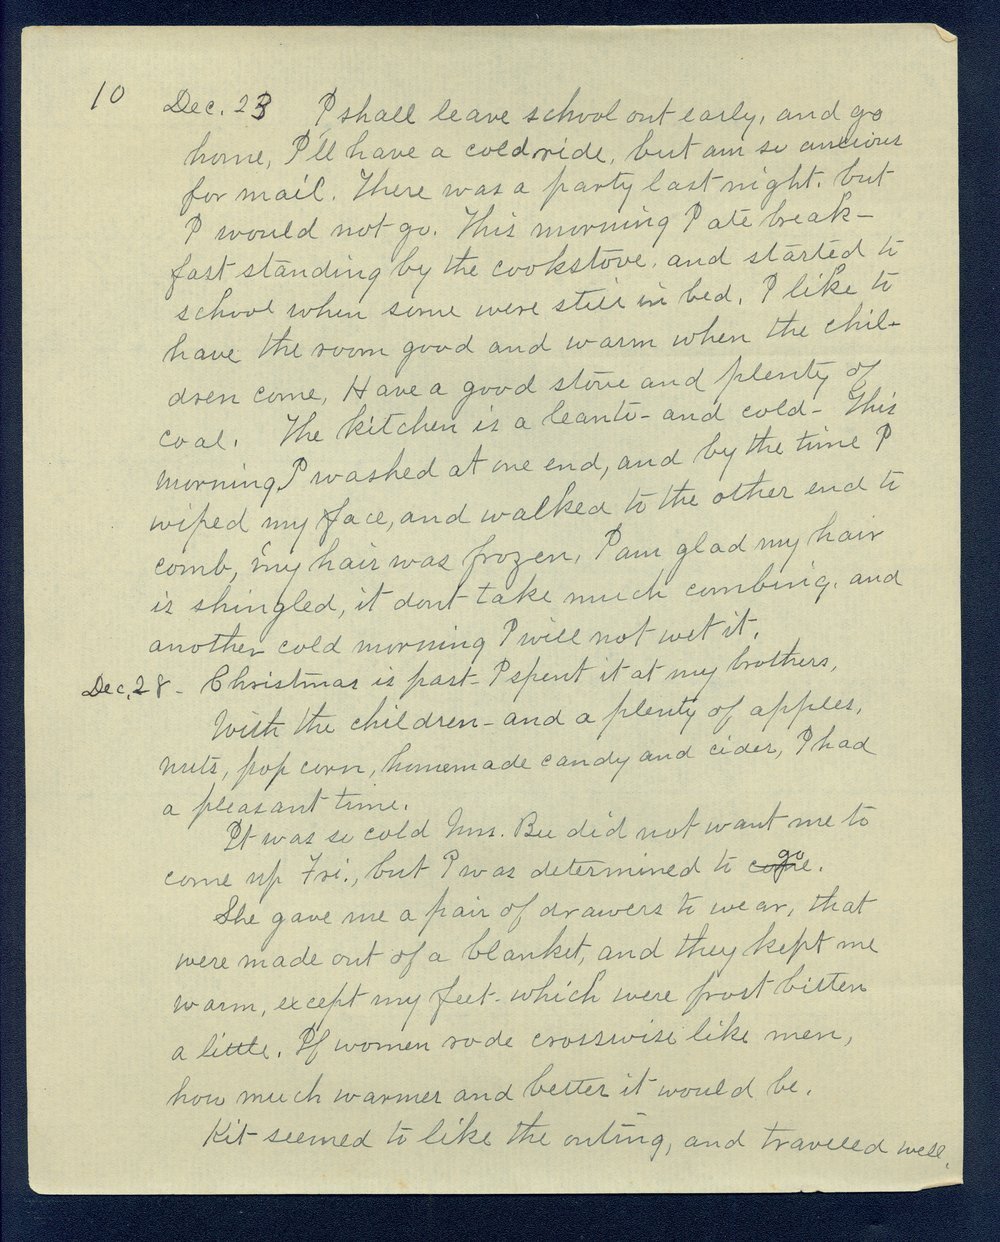 10 Dec. 23 I shall leave school out early, and go
home, I'll have a cold ride, but am so ancious
for mail. There was a party last night. but
I would not go. This morning I ate break-
fast standing by the cookstove. and started to
school when some were still in bed. I like to
have the room good and warm when the chil-
dren come, Have a good stove and plenty of
coal. The kitchen is a leanto- and cold- This
morning, I washed at one end, and by the time I
wiped my face, and walked to the other end to
comb, my hair was frozen. I am glad my hair
is shingled, it dont take much combing. and
another cold morning I will not wet it.
Dec. 28- Christmas is past- I spent it at my brothers,
With the children- and a plenty of apples,
nuts, pop corn, homemade candy and cider, I had
a pleasant time.
It was so cold Mrs. Bee did not want me to
come up Fri., but I was determined to come go.
She gave me a pair of drawers to wear, that
were made out of a blanket, and they kept me
warm, except my feet- which were frost bitten
a little. If women rode crosswise like men,
how much warmer and better it would be.
Kit seemed to like the outing, and traveled well.